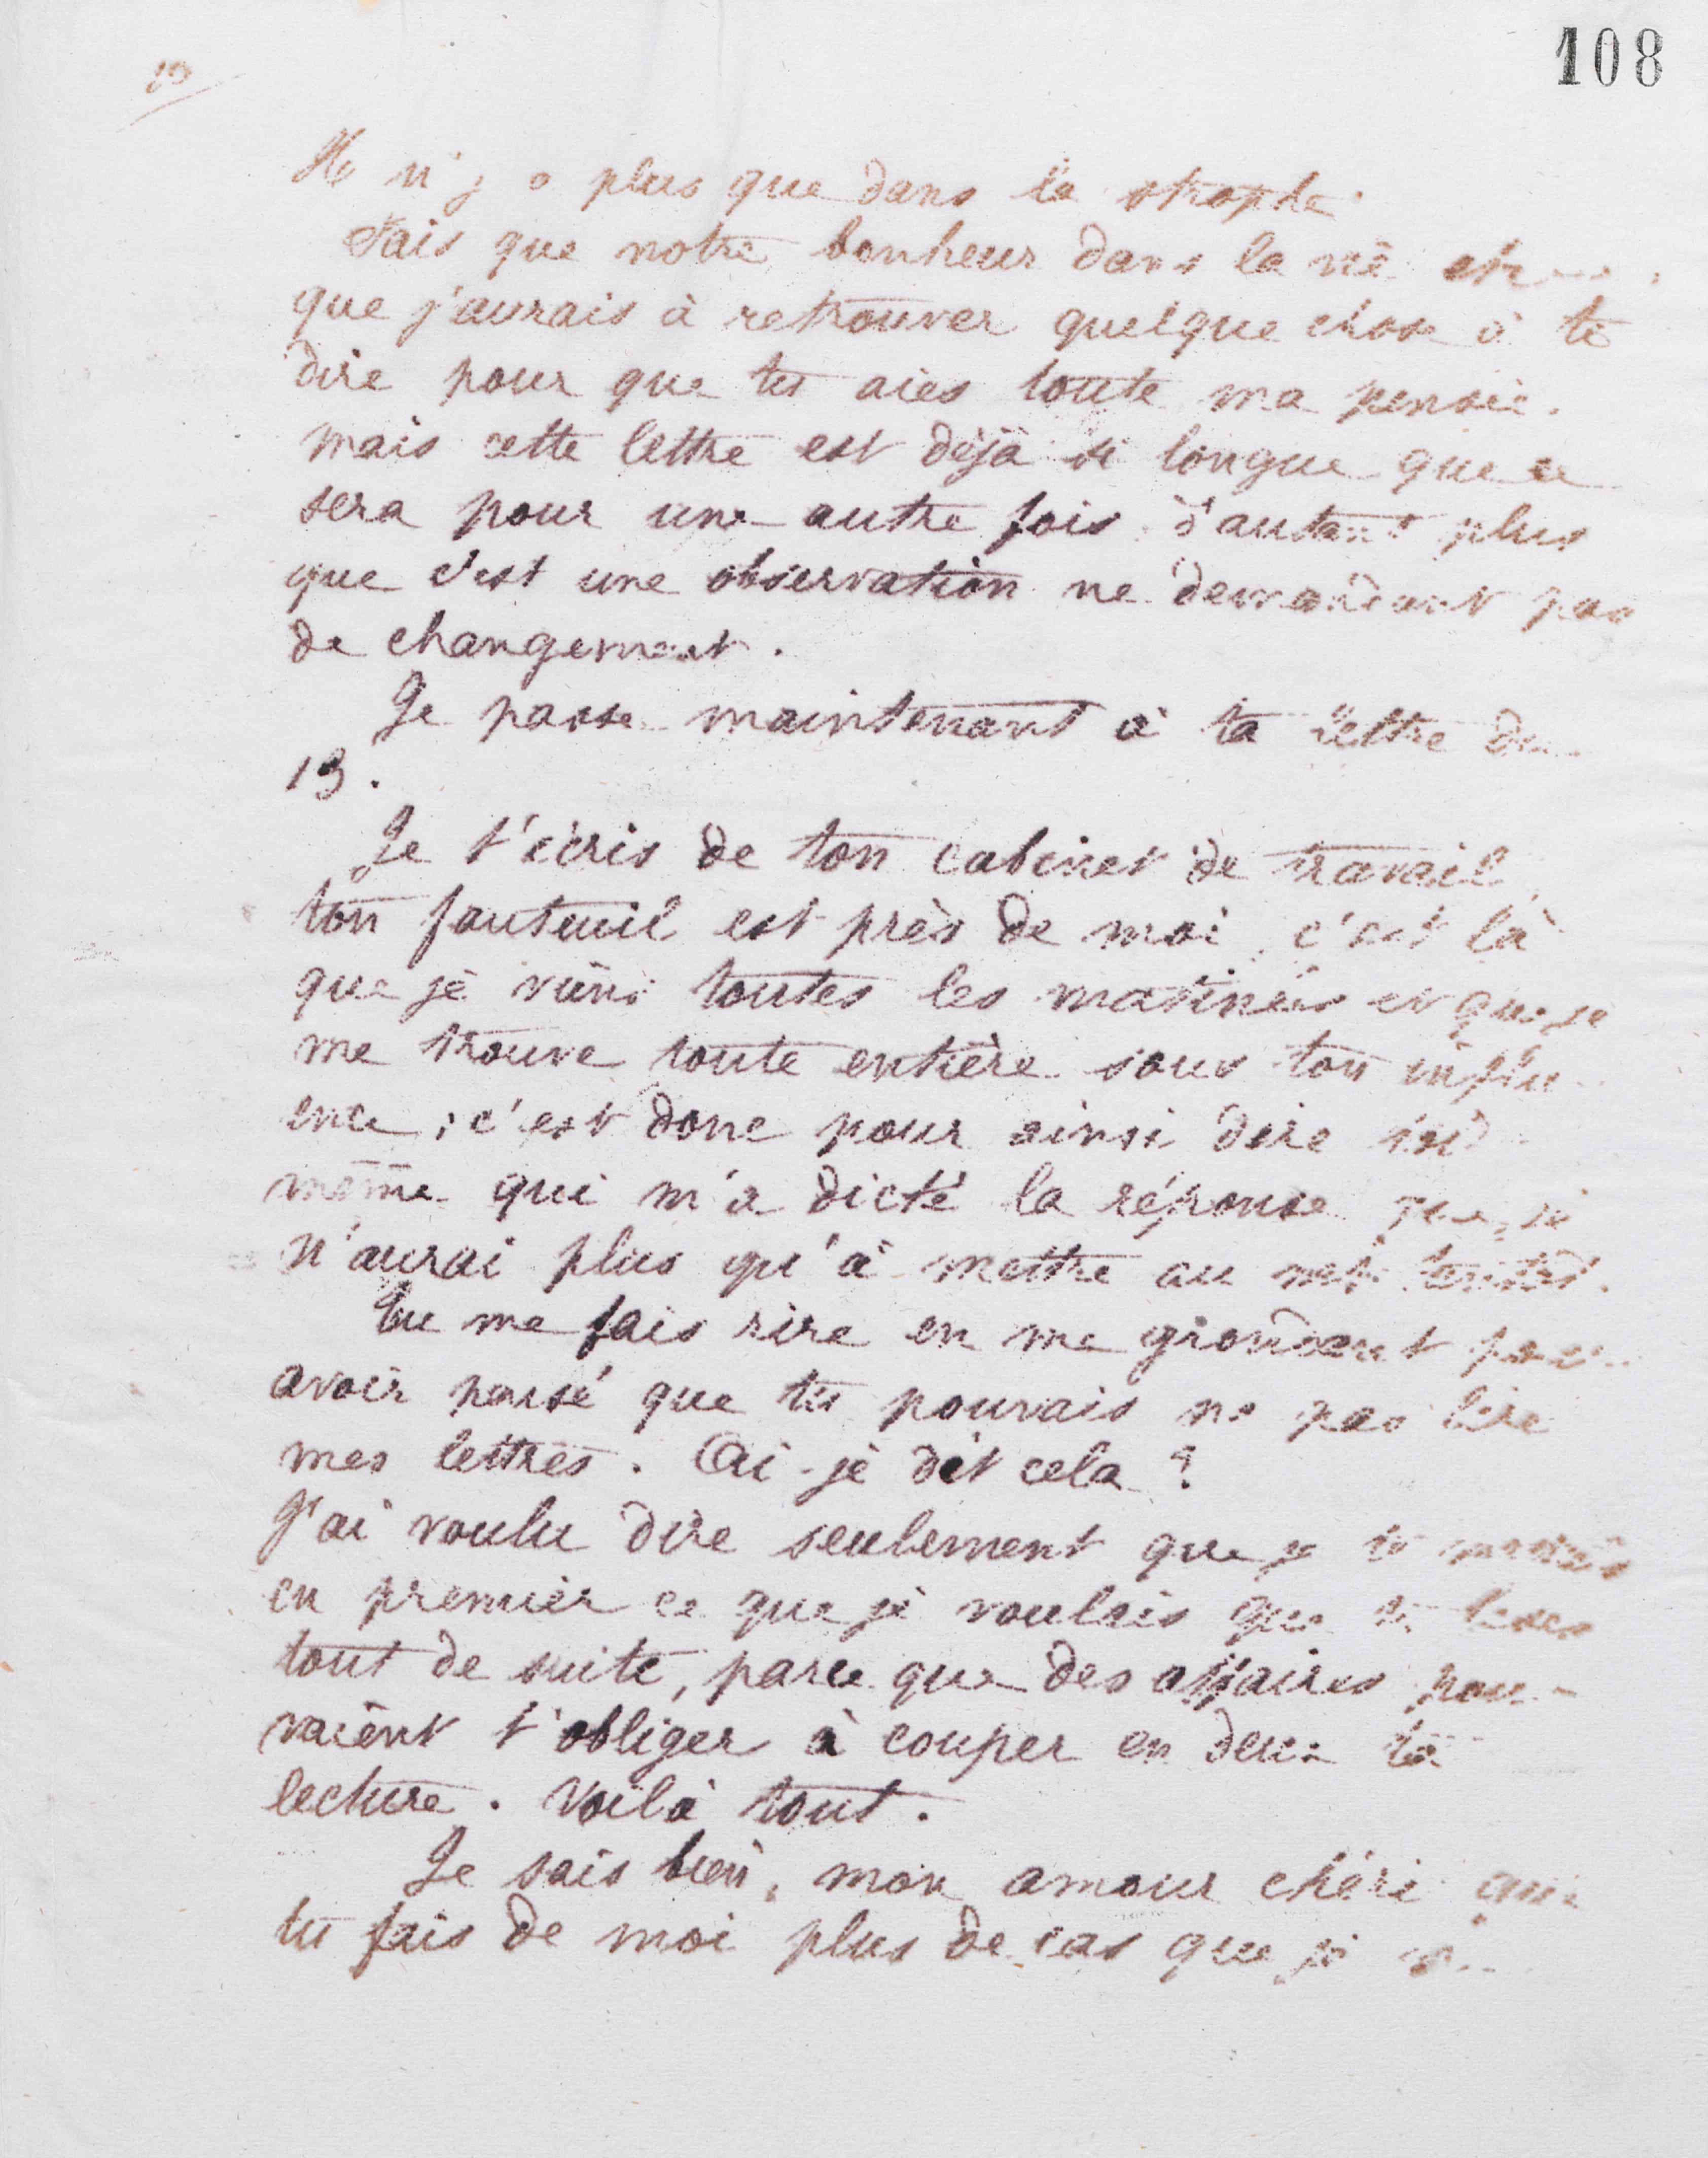 108
10
Il n'y a plus que dans la strophe
Fais que notre bonheur dans la vie
que j'aurais à retrouver quelque chose à te
dire pour que tu aies toute ma pensée.
mais cette lettre est déjà si longue que ce
sera pour une autre fois d'autant plus
que c'est une observation ne demandant pas
de changement.
Je passe maintenant à ta lettre du
13.
Je t'écris de ton cabinet de travail
ton fauteuil est près de moi c'est là
que je viens toutes les matinées et que je
me trouve toute entière sous ton influ-
ence ; c'est donc pour ainsi dire toi
même qui m'a dicté la réponse que je
n'aurai plus qu'à mettre au net tantôt.
Tu me fais rire en me grondant pour
avoir pensé que tu pouvais ne pas lire
mes lettres. Ai-je dit cela ?
J'ai voulu dire seulement que je te
en premier ce que je voulais que tu lises
tout de suite, parce que des affaires pou-
vaient t'obliger à couper en deux ta
lecture. Voilà tout.
Je sais bien, mon amour chéri que
tu fais de moi plus de cas que je